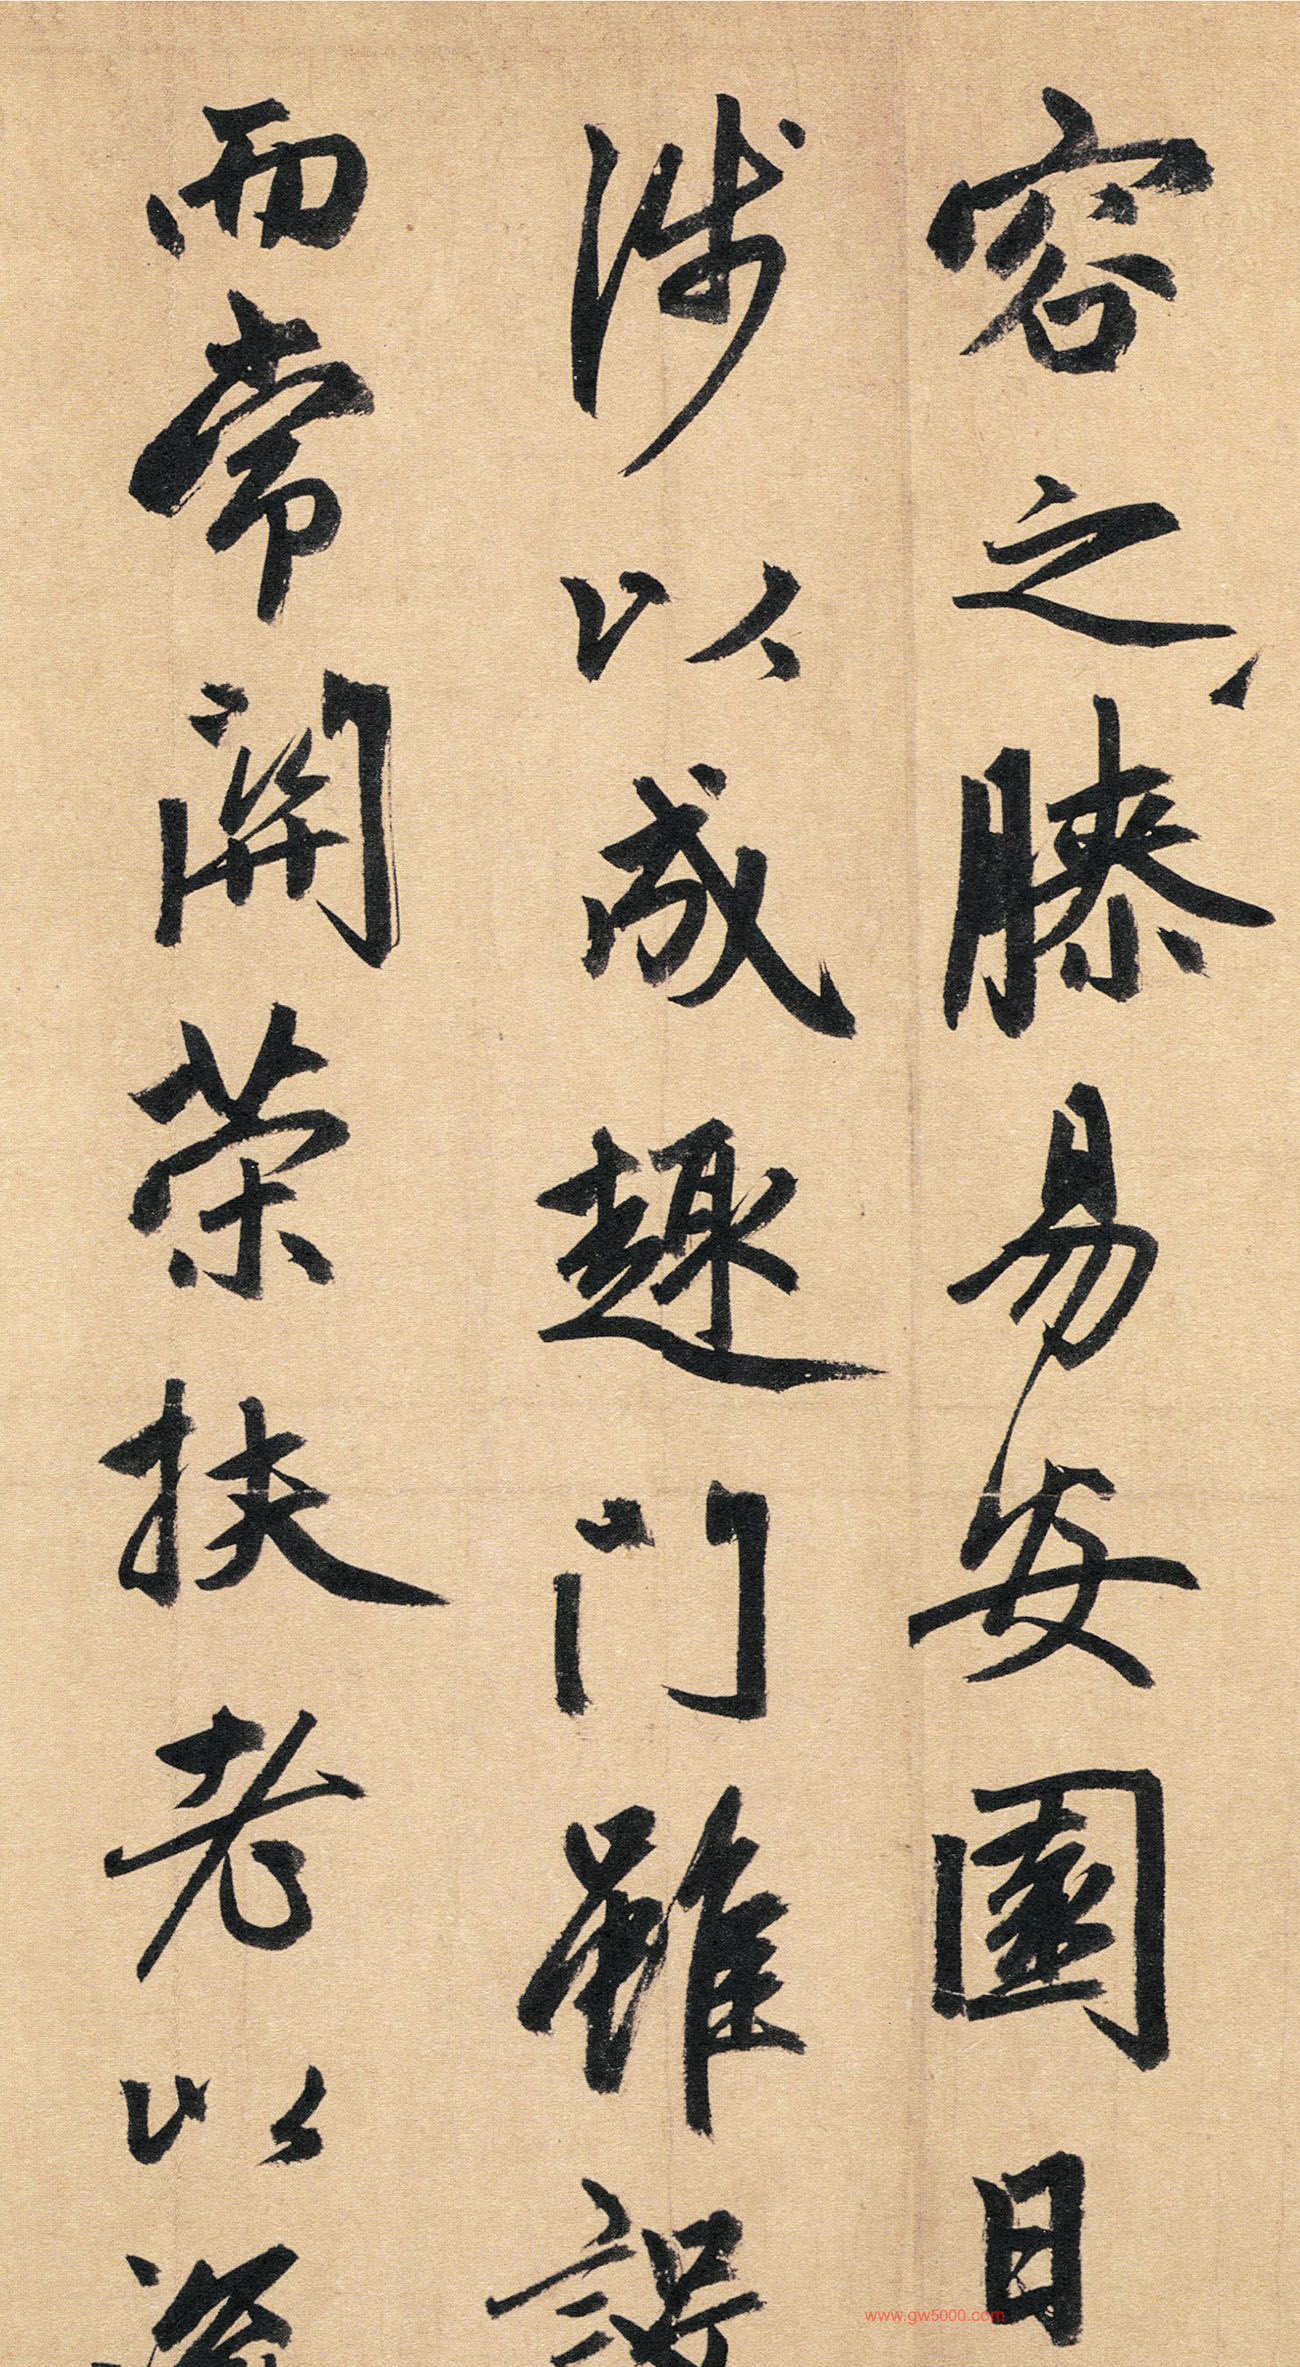 容之膝易安園日
涉以成趣門雖設
而常關策扶老以
www.gw5000.com